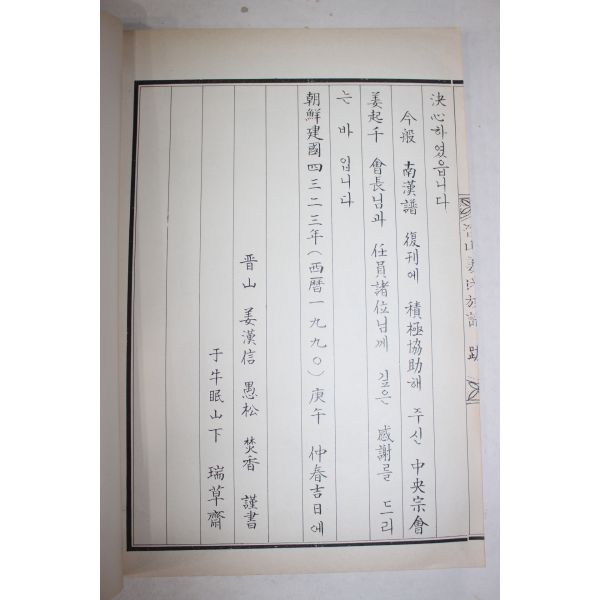 決心하였읍니다
今般 南漢譜 復刊에 積極協助해 주신 中央宗會
姜起千 會長님과 任員諸位님께 깊은 感謝를 드리
는 바 입니다
朝鮮建國四三二三年(西曆一九九〇)庚午 仲春吉日에
晋山 姜漢信 愚松 焚香 謹書
于牛眠山下 瑞草齋